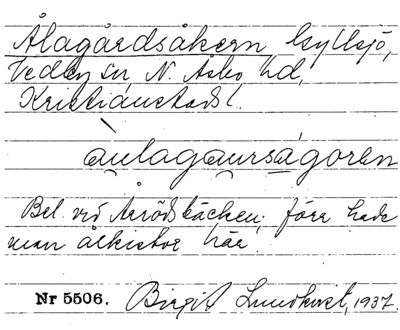 Ålagårdsåkern, Gyllsjö,
Vedby sn, N. Åsbo hd,
Kristianstads l.
àulagaursågoren
Bel. vid Årrödsbäcken; förr hade
man ålkistor här.
Nr 5506. Birgit Lundkvist, 1937.